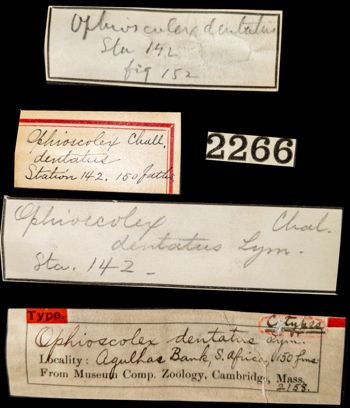 Ophioscolex dentatus
Sta 142
fig 152
Ophioscolex Chall.
dentatus
Station 142. 150 faths
2266
Ophioscolex Chal.
dentatus Lym.
Sta. 142 -
Type.
Ophioscolex dentatus Lym.
Locality: Agulhas Bank S. Africa, 150 fms
From Museum Comp. Zoology, Cambridge, Mass.
2155.